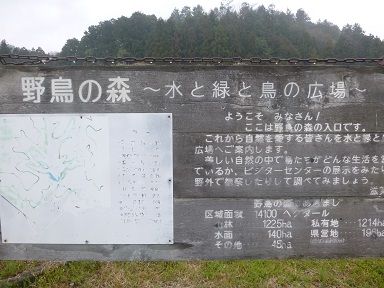 野鳥の森 ～水と緑と鳥の広場～
ようこそ みなさん!
ここは野鳥の森の入口です。
これから自然を愛する皆さんを水と緑と
広場へご案内します。
美しい自然の中で鳥たちがどんな生活を
ているか、ビジターセンターの展示をみたり
野外で観察したりして調べてみましょう。
野鳥の森のあらまし
区域面積 1400 ヘクタール
山林 1225ha 私有地 1214ha
水面 140ha 県営地
その他